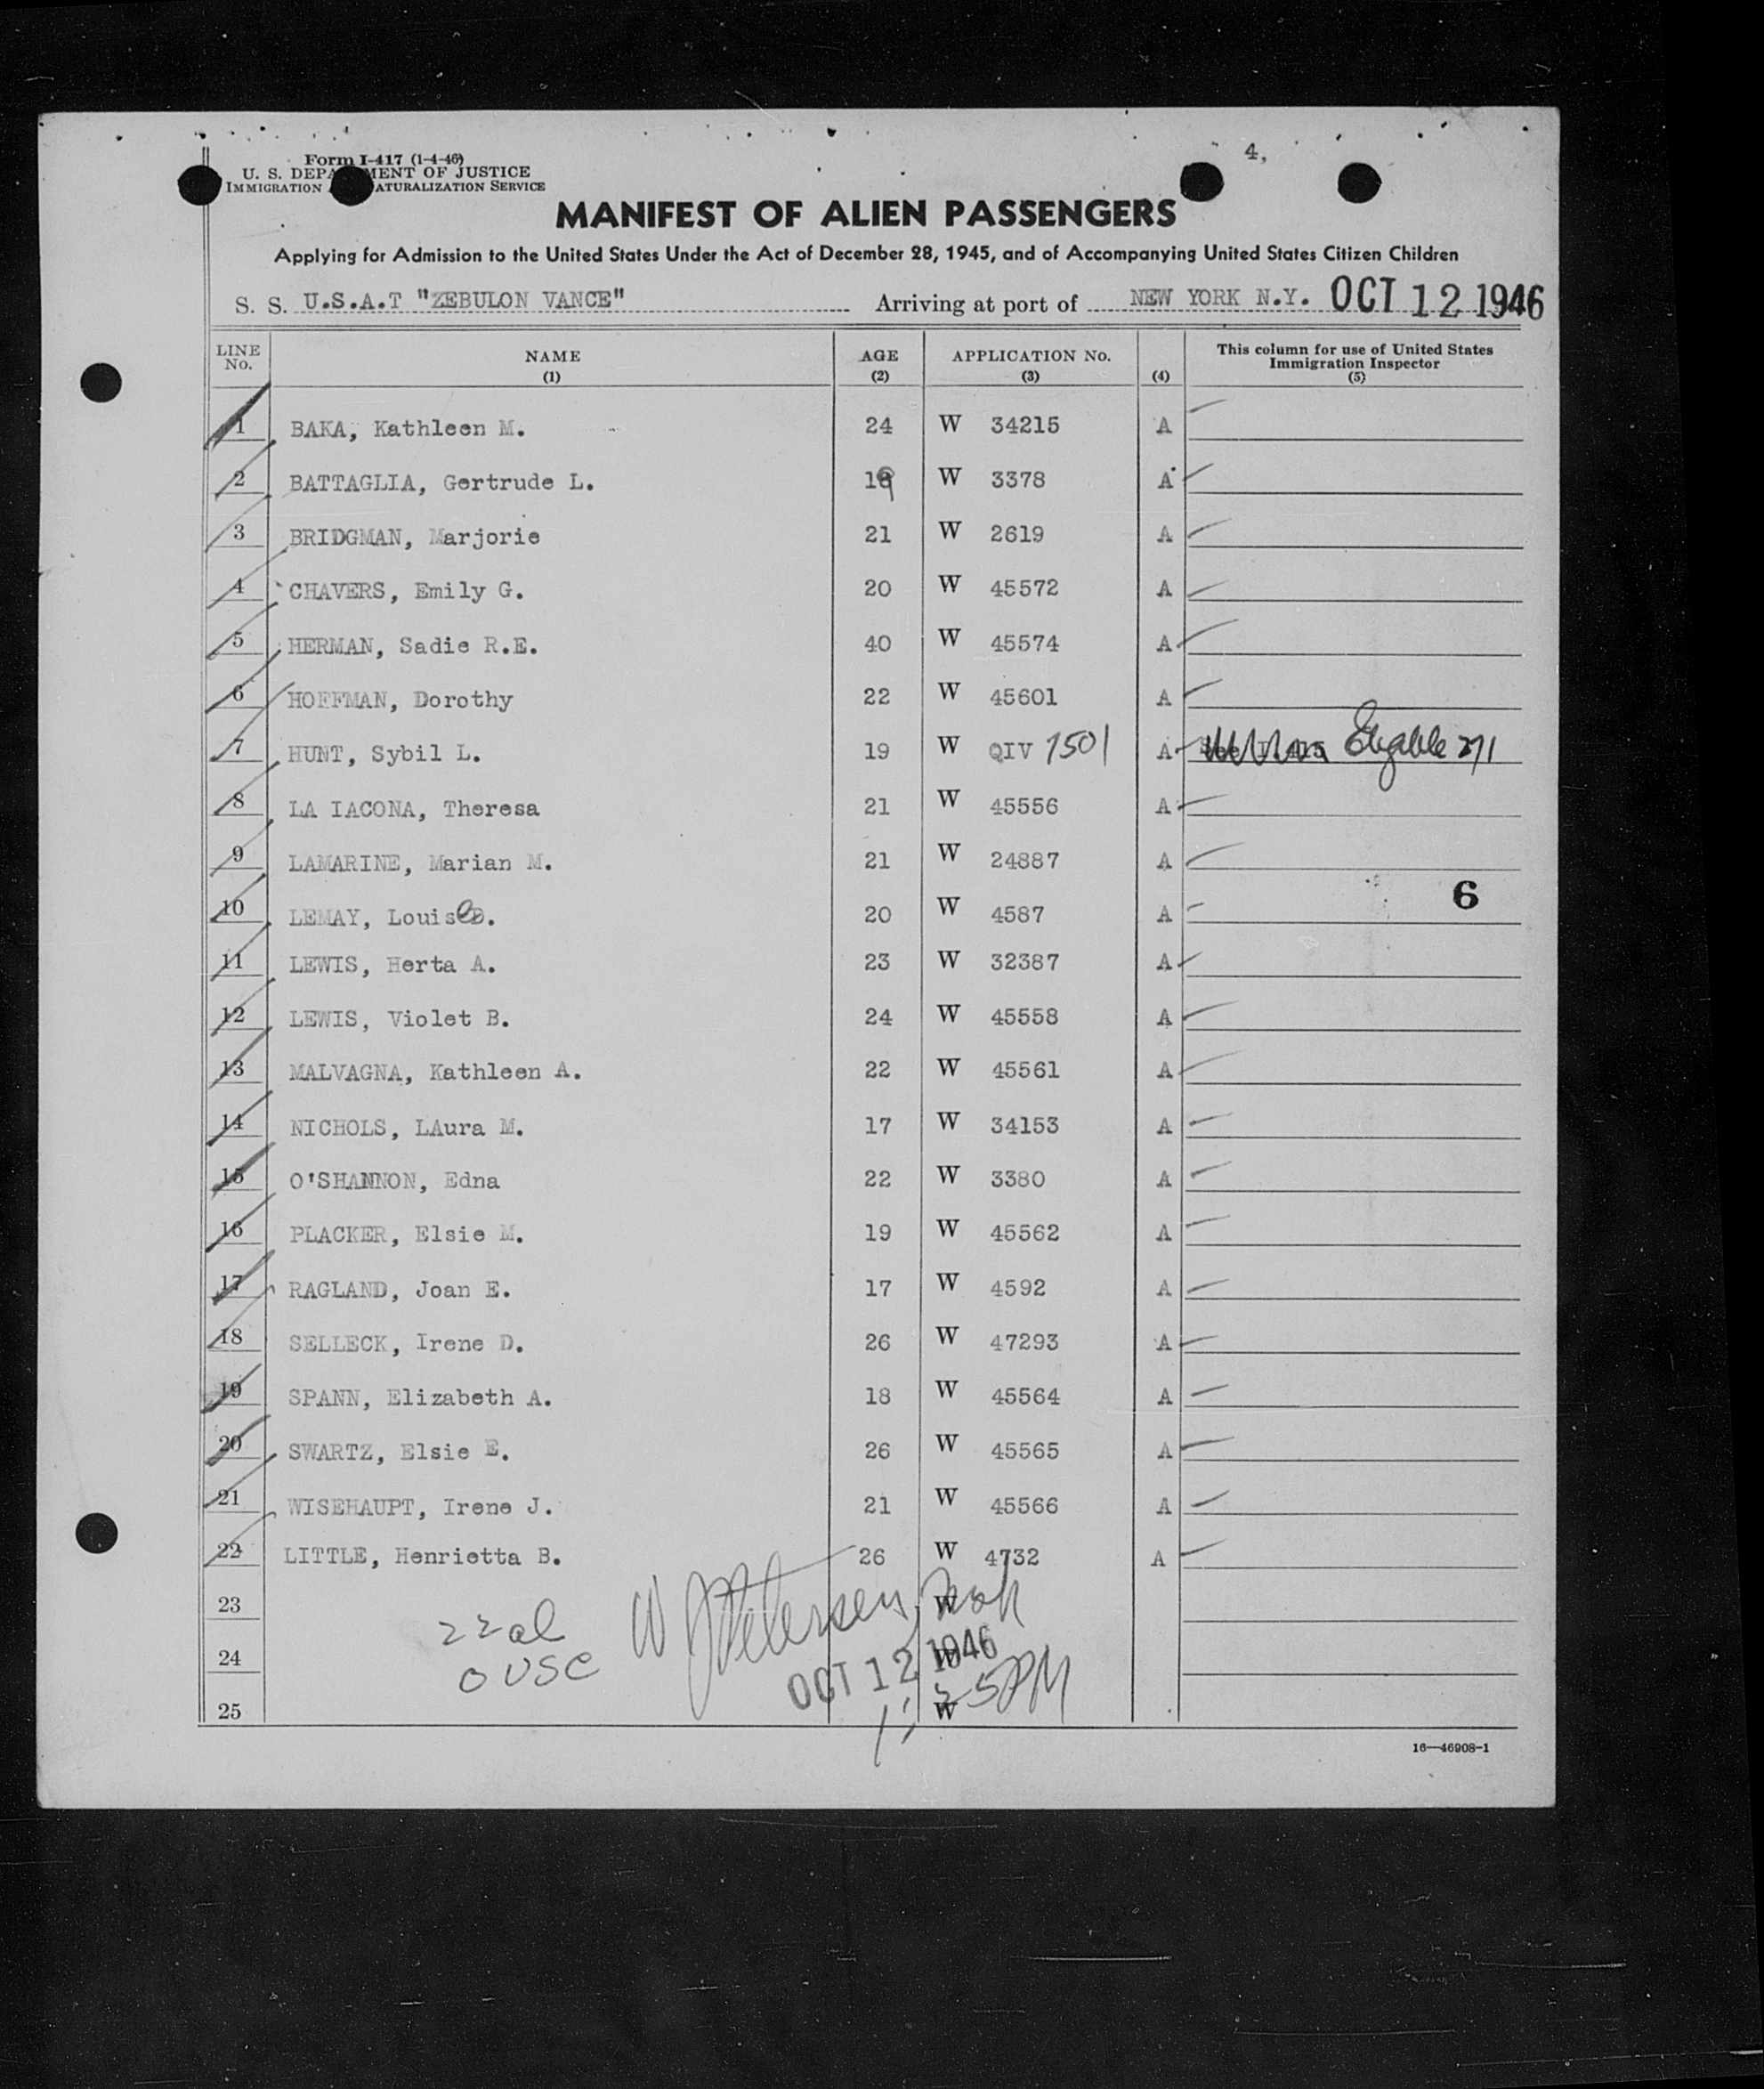 4,
Form I-417 (1-4-46)
U. S. DEPA MENT OF JUSTICE
IMMIGRATION ATURALIZATION SERVICE
MANIFEST OF ALIEN PASSENGERS
Applying for Admission to the United States Under the Act of December 28, 1945, and of Accompanying United States Citizen Children
S. S. U.S.A.T "ZEBULON VANCE" Arriving at port of NEW YORK N.Y. OCT 12 1946
LINE No. NAME (1) AGE (2) APPLICATION No. (3) (4) This column for use of United States Immigration Inspector (5)
1 BAKA, Kathleen M. 24 W 34215 A
2 BATTAGLIA, Gertrude L. 19 W 3378 A
3 BRIDGMAN, Marjorie 21 W 2619 A
4 CHAVERS, Emily G. 20 W 45572 A
5 HERMAN, Sadie R.E. 40 W 45574 A
6 HOFFMAN, Dorothy 22 W 45601 A
7 HUNT, Sybil L. 19 W QIV 1501 A Eligible
8 LA IACONA, Theresa 21 W 45556 A
9 LAMARINE, Marian M. 21 W 24887 A
6
10 LEMAY, Louise D. 20 W 4587 A
11 LEWIS, Herta A. 23 W 32387 A
12 LEWIS, Violet B. 24 W 45558 A
13 MALVAGNA, Kathleen A. 22 W 45561 A
14 NICHOLS, LAura M. 17 W 34153 A
15 O'SHANNON, Edna 22 W 3380 A
16 PLACKER, Elsie M. 19 W 45562 A
17 RAGLAND, Joan E. 17 W 4592 A
18 SELLECK, Irene D. 26 W 47293 A
19 SPANN, Elizabeth A. 18 W 45564 A
20 SWARTZ, Elsie E. 26 W 45565 A
21 WISEHAUPT, Irene J. 21 W 45566 A
22 LITTLE, Henrietta B. 26 W 4732 A
23 W
22 al W Petersen
24 W
0 USC OCT 12 1946
25 W
16—46908-1